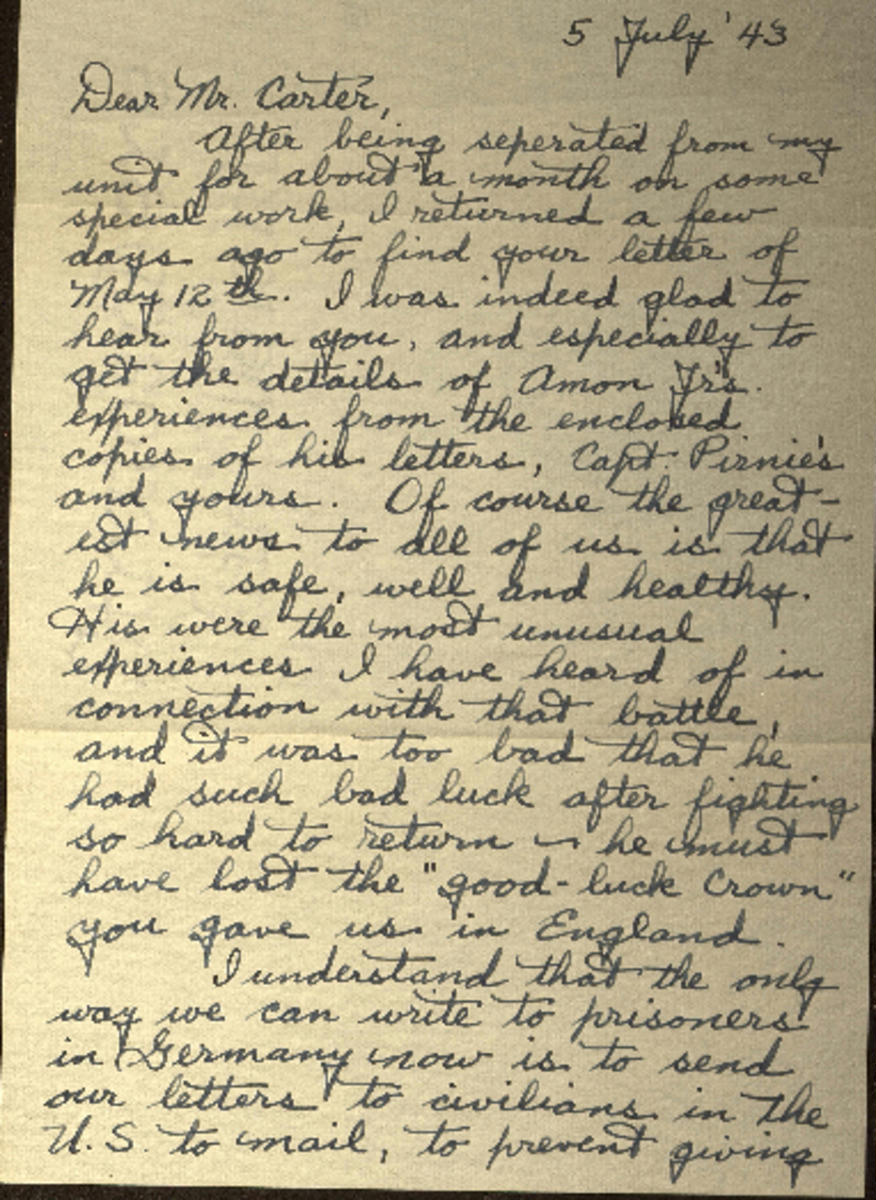 5 July '43
Dear Mr. Carter,
After being seperated from my
unit for about a month on some
special work, I returned a few
days ago to find your letter of
May 12th. I was indeed glad to
hear from you, and especially to
get the details of Amon Jr's.
experiences from the enclosed
copies of his letters, Capt. Pirnie's
and yours. Of course the great-
est news to all of us is that
he is safe, well and healthy.
His were the most unusual
experiences I have heard of in
connection with that battle,
and it was too bad that he
had such bad luck after fighting
so hard to return — he must
have lost the "good-luck Crown"
you gave us in England.
I understand that the only
way we can write to prisoners
in Germany now is to send
our letters to civilians in the
U.S. to mail, to prevent giving